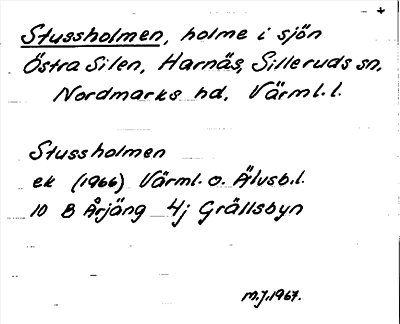 Stussholmen, holme i sjön
Östra Silen, Harnäs, Silleruds sn,
Nordmarks hd, Värml. l.
Stussholmen
ek (1966) Värml. o. Älvsb. l.
10 B Årjäng 4j Grällsbyn
M.J. 1967.